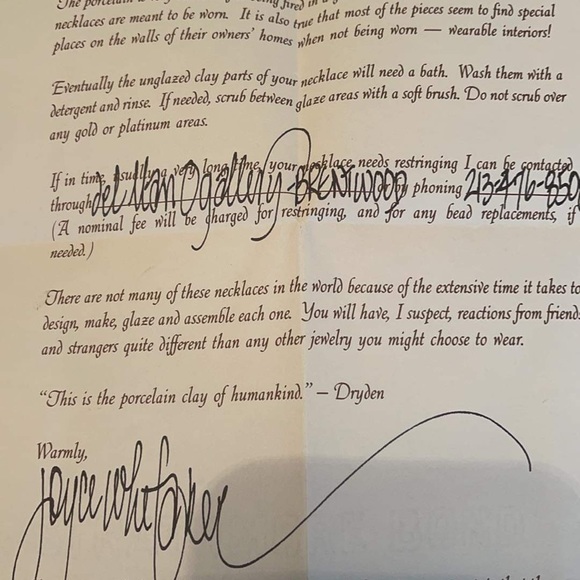 necklaces are meant to be worn. It is also true that most of the pieces seem to find special
places on the walls of their owners' homes when not being worn — wearable interiors!
Eventually the unglazed clay parts of your necklace will need a bath. Wash them with a
detergent and rinse. If needed, scrub between glaze areas with a soft brush. Do not scrub over
any gold or platinum areas.
If in time, usually a very long time, your necklace needs restringing I can be contacted
through del Mano gallery - BRENTWOOD or by phoning 213-476-850
(A nominal fee will be charged for restringing, and for any bead replacements, if
needed.)
There are not many of these necklaces in the world because of the extensive time it takes to
design, make, glaze and assemble each one. You will have, I suspect, reactions from friends
and strangers quite different than any other jewelry you might choose to wear.
"This is the porcelain clay of humankind." – Dryden
Warmly,
Joyce Whitaker